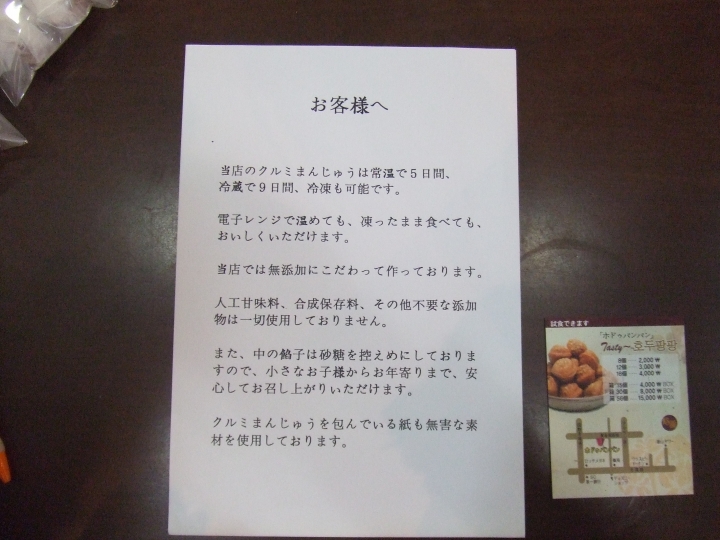 お客様へ
当店のクルミまんじゅうは常温で5日間、
冷蔵で9日間、冷凍も可能です。
電子レンジで温めても、凍ったまま食べても、
おいしくいただけます。
当店では無添加にこだわって作っております。
人工甘味料、合成保存料、その他不要な添加
物は一切使用しておりません。
また、中の餡子は砂糖を控えめにしておりま
すので、小さなお子様からお年寄りまで、安
心してお召し上がりいただけます。
クルミまんじゅうを包んでいる紙も無害な素
材を使用しております。
試食できます
「ホドゥパンパン」
Tasty~호두팡팡
8個 2,000₩
12個 3,000₩
16個 4,000₩
15個 4,000₩ BOX
30個 8,000₩ BOX
56個 15,000₩ BOX
ホドゥパンパン